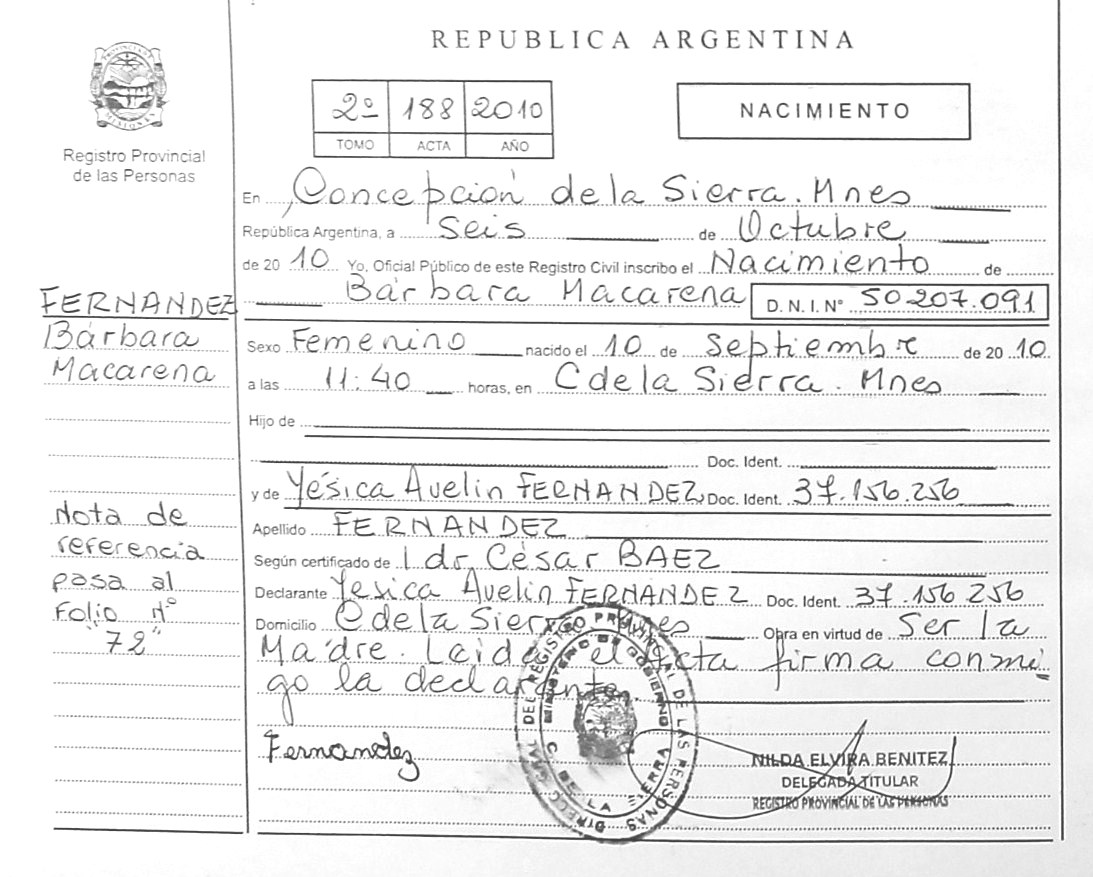 REPUBLICA ARGENTINA
PROVINCIA DE
MISIONES
Registro Provincial
de las Personas
2º 188 2010
TOMO ACTA AÑO
NACIMIENTO
En Concepción de la Sierra. Mnes
República Argentina, a Seis de Octubre
de 20 10 Yo, Oficial Público de este Registro Civil inscribo el Nacimiento de
Bárbara Macarena D.N.I.Nº 50.207.091
Sexo Femenino nacido el 10 de Septiembre de 20 10
a las 11:40 horas, en C de la Sierra. Mnes
Hijo de
Doc. Ident.
y de Yésica Avelin FERNANDEZ Doc. Ident. 37.156.256
Apellido FERNANDEZ
Según certificado de l dr. César BAEZ
Declarante Yesica Avelin FERNANDEZ Doc. Ident. 37.156 256
Domicilio C de la Sierra Mnes Obra en virtud de Ser la
Madre. Leida el Acta firma conmi
go la declarante
FERNANDEZ
Bárbara
Macarena
Nota de
referencia
pasa al
Folio Nº
"72"
Fernandez
DEL REGISTRO PROVINCIAL DE LAS PERSONAS
MINISTERIO DE GOBIERNO
C. DE LA SIERRA
NILDA ELVIRA BENITEZ
DELEGADA TITULAR
REGISTRO PROVINCIAL DE LAS PERSONAS